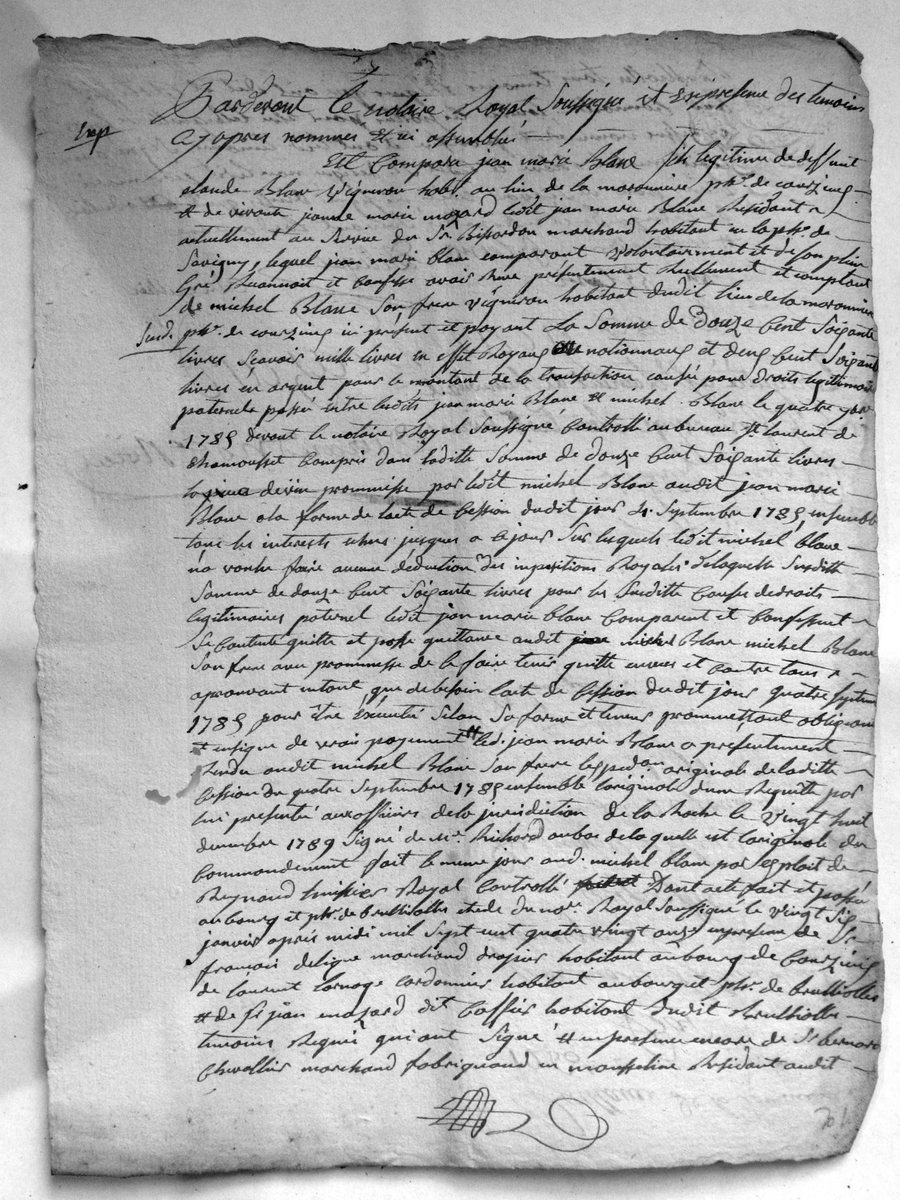 Pardevant le notaire Royal Soussigné et en presence des temoins
Exp.
cy apres nommes et ici assemblés
Est Comparu jean marie Blanc fils legitime de deffunt
claude Blanc vigneron habt. au lieu de la maronniere psse. de courzieug
et de vivante jeanne marie mazard ledit jean marie Blanc Residant
actuellement au service du Sr. Bissardon marchand habitant en la psse. de
Savigny, lequel jean marie blanc comparant volontairement et de son plein
Gré Reconnoit et Confesse avoir Recu presentement Reellement et comptant
de michel Blanc Son frere vigneron habitant dudit lieu de la maronniere
psse. de courzieug ici present et payant La Somme de Douze Cent Soixante
livres Scavoir mille livres en effet Royaux ou nationnaux et deux Cent Soixante
livres en argent pour le montant de la transaction causée pour droits legitimaires
paternels passée entre lesdits jean marie Blanc et michel Blanc le quatre 7bre
1785 devant le notaire Royal Soussigné Controllé au bureau St. laurent de
chamousset Compris dans laditte Somme de douze Cent Soixante livres
de vin prommise par ledit michel Blanc audit jean marie
Blanc a la forme de lacte de Cession dudit jour 4. Septembre 1785 ensemble
tous les interests echus jusques a ce jour Sur lesquels ledit michel blanc
na voulu faire aucune déduction des impositions Royales de laquelle Susditte
Somme de douze Cent Soixante livres pour les Susditte Causes de droits
legitimaires paternel ledit jean marie blanc Comparent et Confessant
Se Contente quitte et passe quittance audit michel Blanc michel Blanc
Son frere avec prommesse de le faire tenir quitte envers et contre tous
aprouvant entant que de besoin lacte de Cession dudit jour quatre septembre
1785 pour être éxecuté Selon Sa forme et teneur prommettant obligeant
et ensigne de vrai payement led. jean marie Blanc a presentement
Rendu audit michel Blanc Son frere lexpedon originale de laditte
Cession du quatre Septembre 1785 ensemble l'originale dune Requette par
lui presenté aux officiers de la jurisdiction de la Roche le Vingt huit
decembre 1789 Signé de Me. Richard au bas de laquelle est l'originale du
Commandement fait le meme jour aud. michel blanc par exploit de
Reynaud huissier Royal Controllé Dont acte fait et passé
au bourg et psse. de brullioles etude du nore. Royal Soussigné le vingt Six
janvier apres midi mil Sept cent quatre vingt onze en presence de Sr.
francois deligne marchand drapier habitant au bourg de Courzieug
de laurent Carnage Cordonnier habitant au bourg et psse. de brullioles
et de Sr jean mazard dit habitant dudit Brullioles
temoins Requis qui ont Signé et en presence encore de Sr bernard
Chevallier marchand fabriquand en mousseline Residant audit